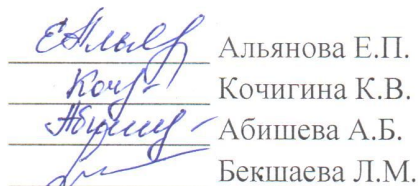 Альянова Е.П.
Кочигина К.В.
Абишева А.Б.
Бекшаева Л.М.